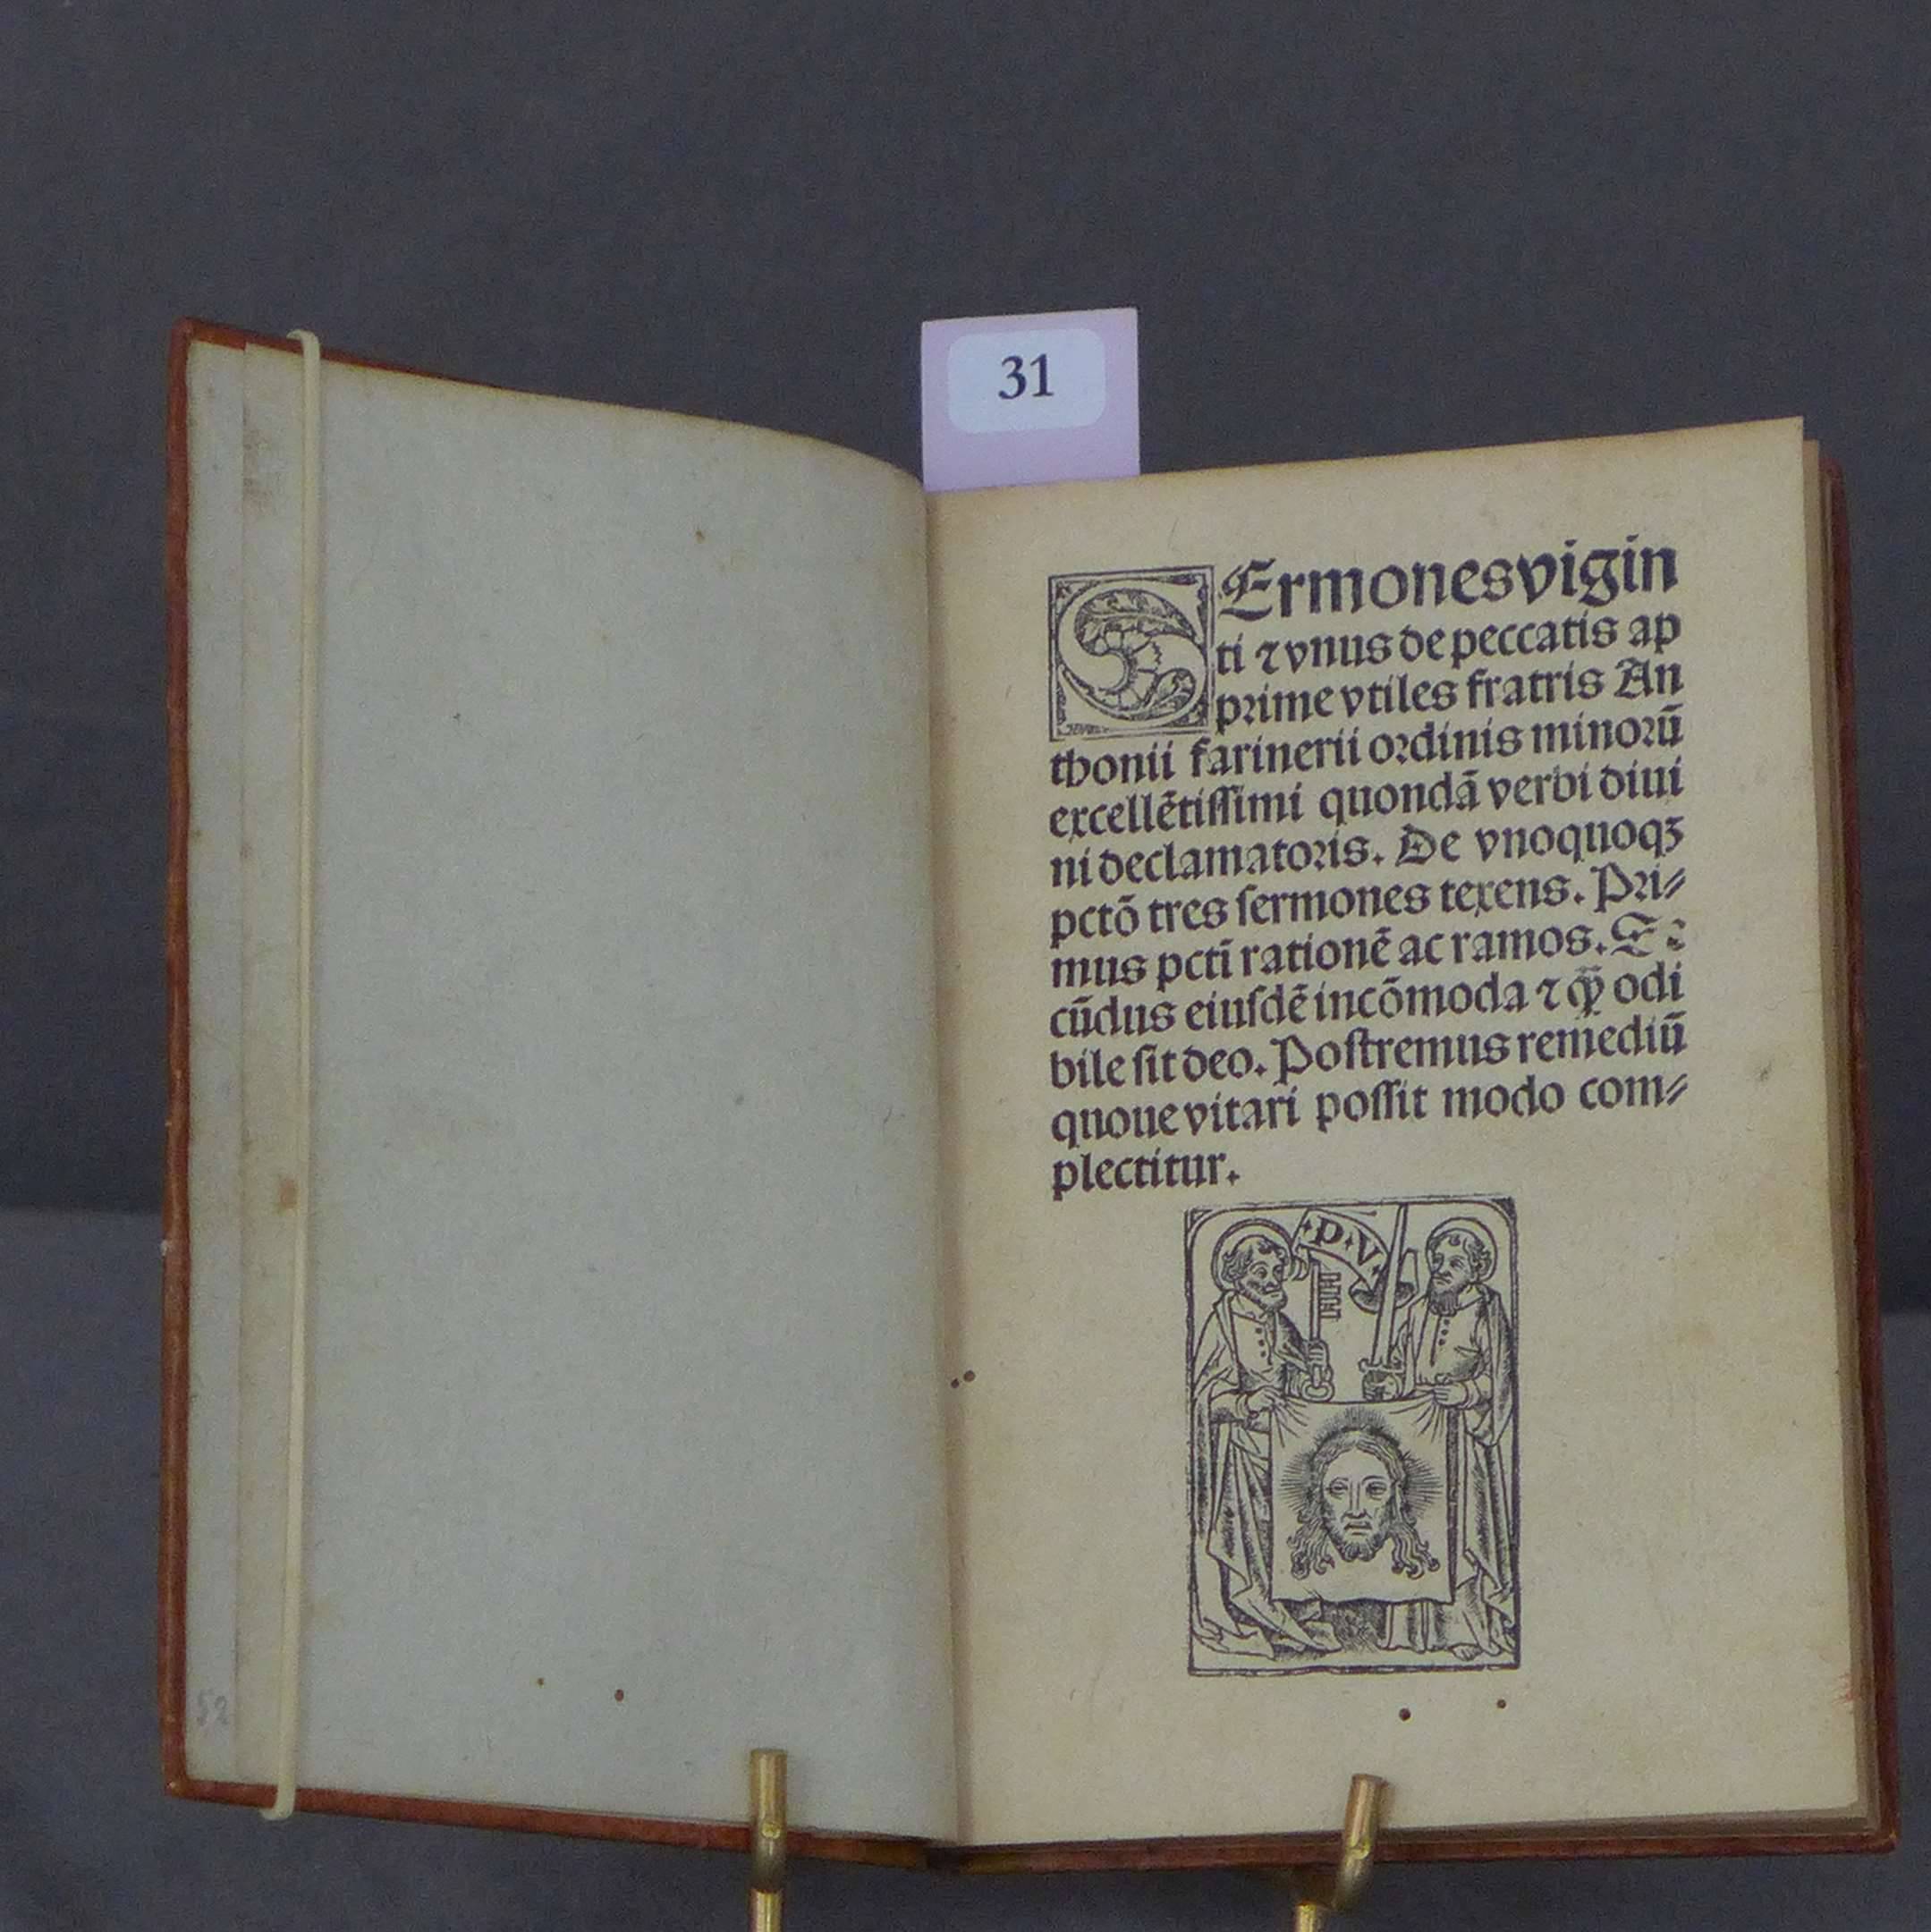 31
SErmones vigin
ti ⁊ vnus de peccatis ap
prime vtiles fratris An
thonii farinerii ordinis minorũ
excellẽtissimi quondã verbi diui
ni declamatoris. De vnoquoqꝫ
pctõ tres sermones texens. Pri⸗
mus pcti̅ rationẽ ac ramos. Se
cũdus eiusdẽ incõmoda ⁊ odi
bile sit deo. Postremus remediũ
quoue vitari possit modo com⸗
plectitur.
P V
52